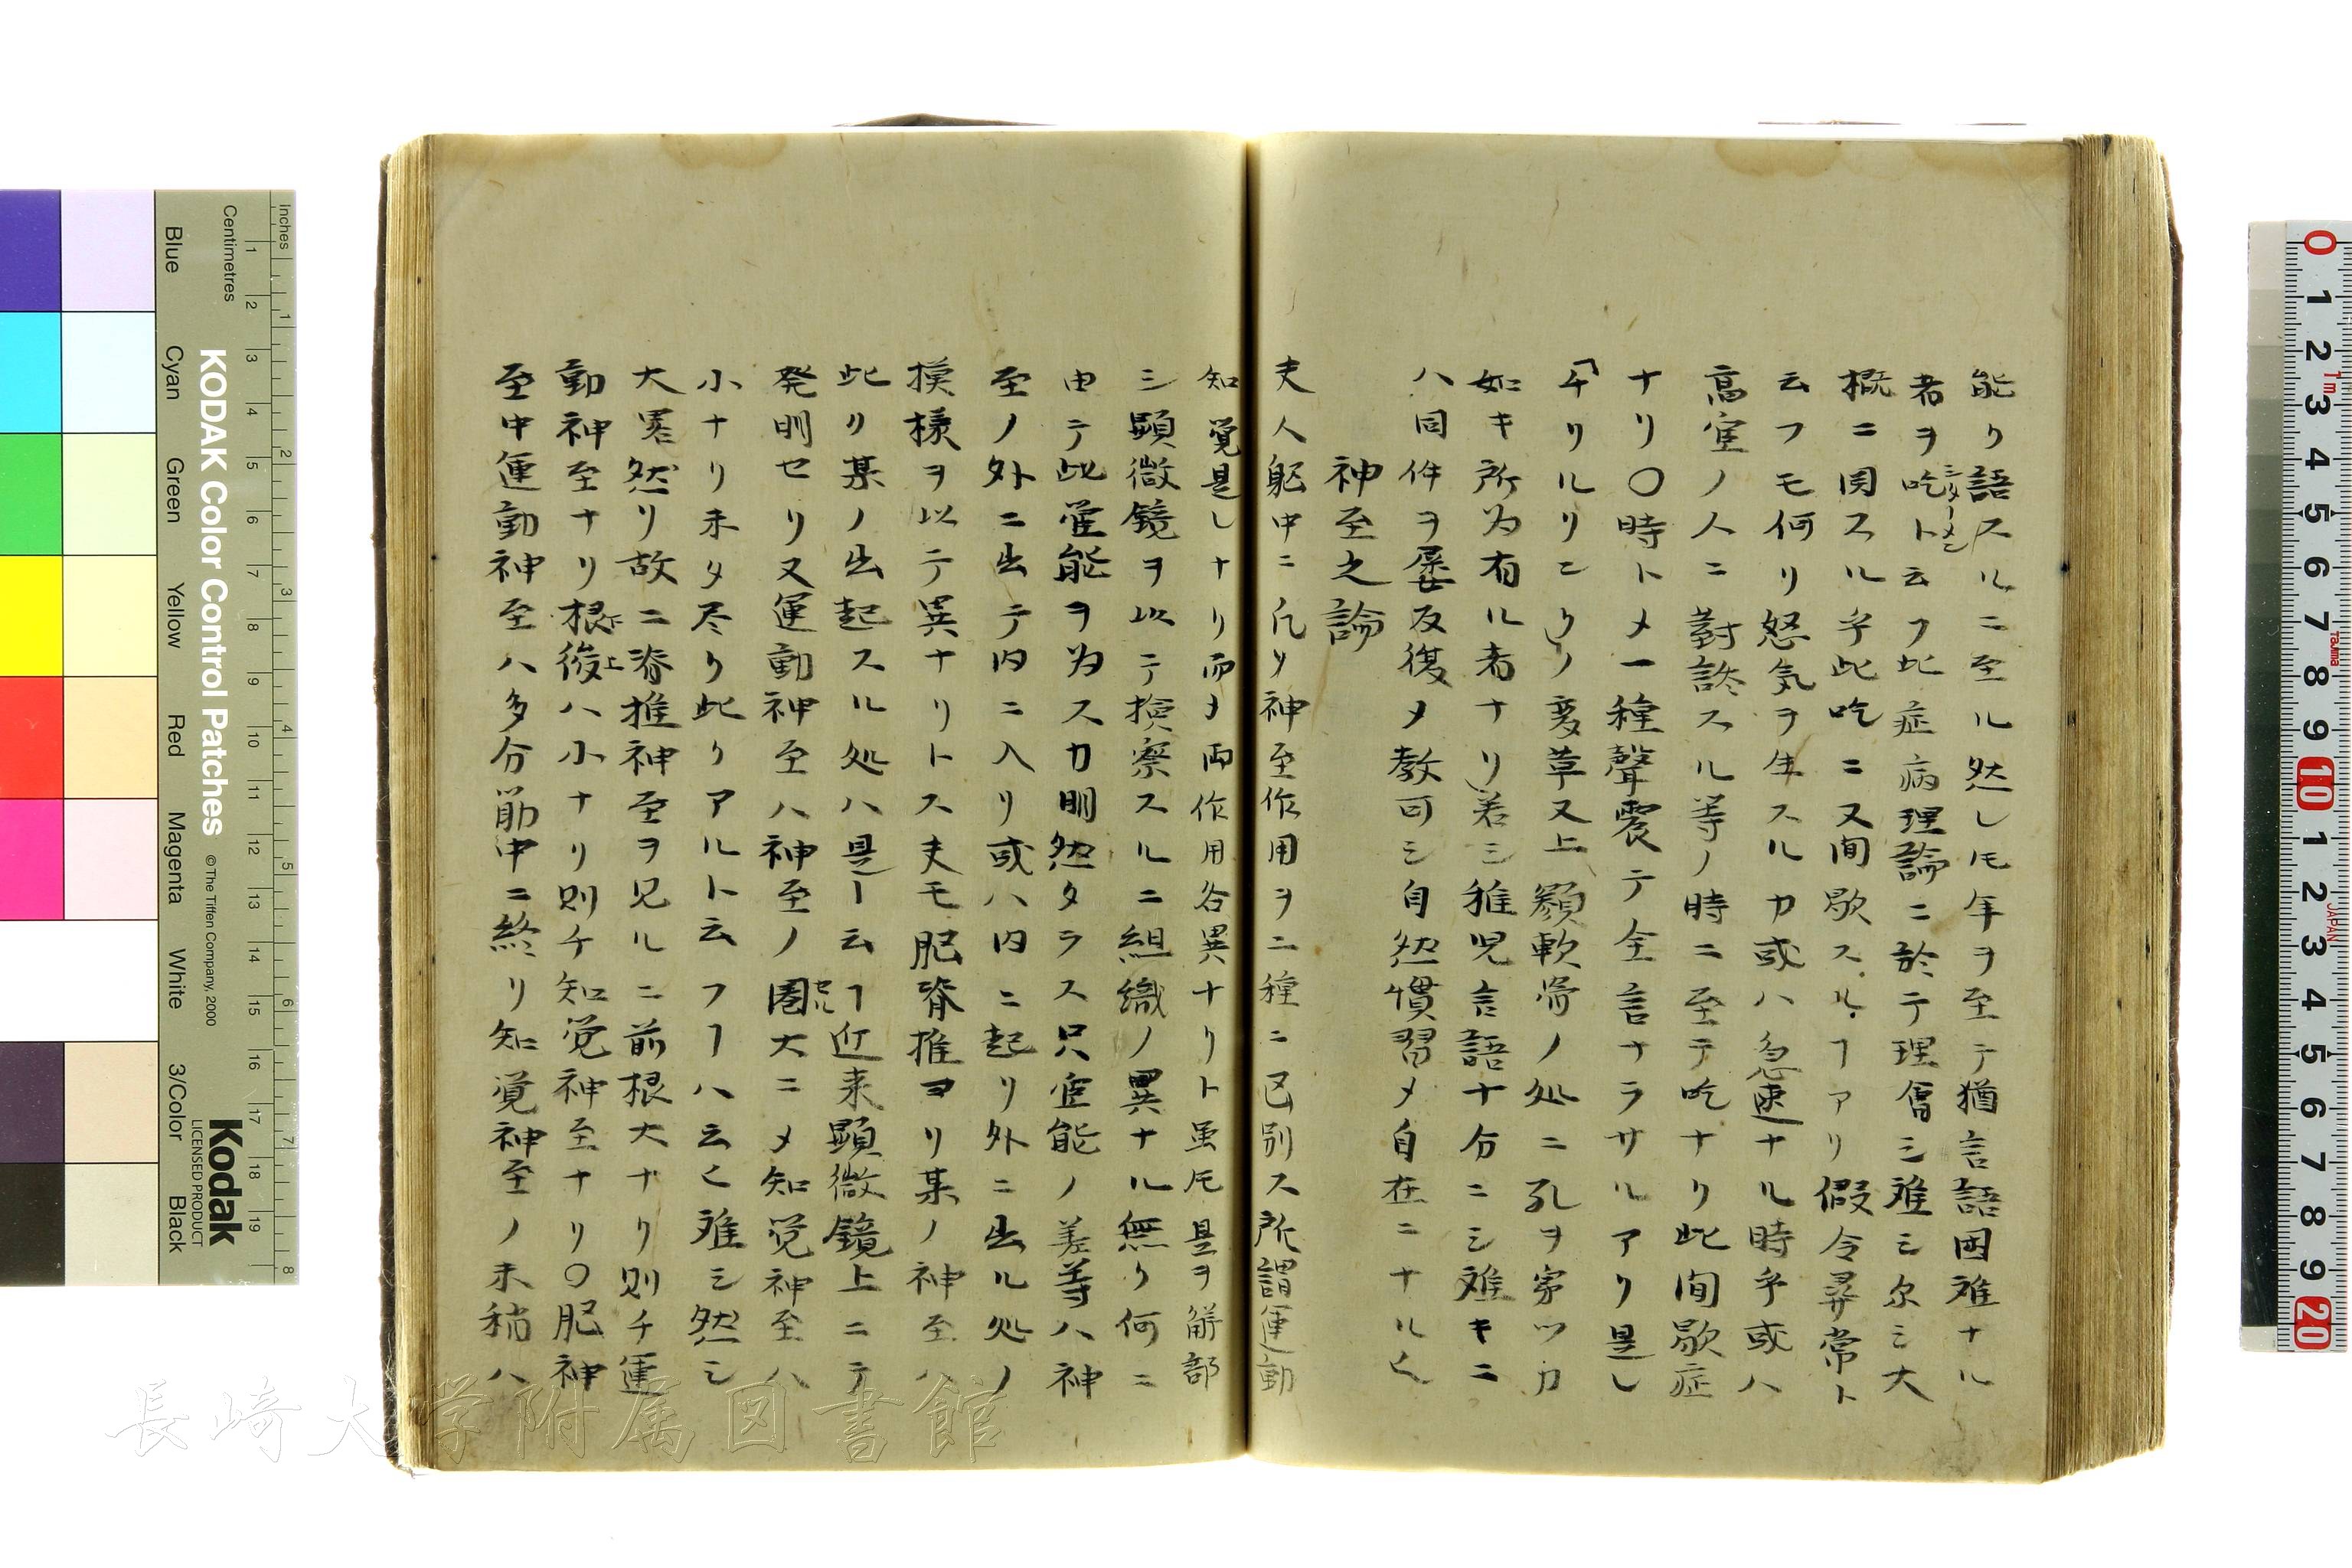 能ク語スルニ至ル然レ𪜈年ヲ至テ猶言語困难ナル
者ヲ吃ト云フ此症病理論ニ於テ理會シ难シ尓シ大
概ニ関スル乎此吃ニ又间歇スルヿアリ假令尋常ト
云フモ何リ怒気ヲ生スルカ或ハ急速ナル時乎或ハ
高宦ノ人ニ對談スル等ノ時ニ至テ吃ナリ此间歇症
ナリ〇時トメ一種聲震テ全言ナラサルアリ是レ
変草又上顎軟骨ノ処ニ孔ヲ穿ツカ
如キ所为有ル者ナリ若シ稚児言語十分ニシ难キニ
ハ同件ヲ屡反復メ教可シ自然慣習メ自在ニナル
神至之論
夫人躯中ニ凡ソ神至作用ヲ二種ニ区别ス所謂運動
知覚是レナリ而メ両作用各異ナリト虽𪜈是ヲ解部
シ顕微鏡ヲ以テ撿察スルニ組織ノ異ナル無ク何ニ
由テ此宦能ヲ为スカ明然タラス只宦能ノ差等ハ神
至ノ外ニ出テ内ニ入リ或ハ内ニ起リ外ニ出ル処ノ
摸様ヲ以テ異ナリトス夫モ脳脊推ヨリ某ノ神至ハ
此リ某ノ出起スル処ハ是ト云フヿ近来顕微鏡上ニテ
発明セリ又運動神至ハ神至ノ圏大ニメ知覚神至ハ
小ナリ未タ尽ク此クアルト云フヿハ云ヒ难シ然シ
大畧然リ故ニ脊推神至ヲ見ルニ前根大ナリ則チ運
動神至ナリ後根ハ小ナリ則チ知覚神至ナリ〇脳神
至中運動神至ハ多分筋中ニ終リ知覚神至ノ末稍ハ
Blue
Cyan
Green
Yellow
Red
Magenta
White
3/Color
Black
Centimetres
Inches
KODAK Color Control Patches
© The Tiffen Company, 2000
Kodak
LICENSED PRODUCT
長崎大学附属図書館